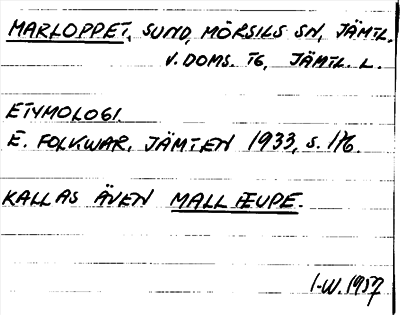 MARLOPPET, SUND, MÖRSILS SN, JÄMTL.
V. DOMS. TG, JÄMTL. L.
ETYMOLOGI.
E. FOLKWAR, JÄMTEN 1933, S. 176.
KALLAS ÄVEN MALLÆUPE.
I-W. 1957